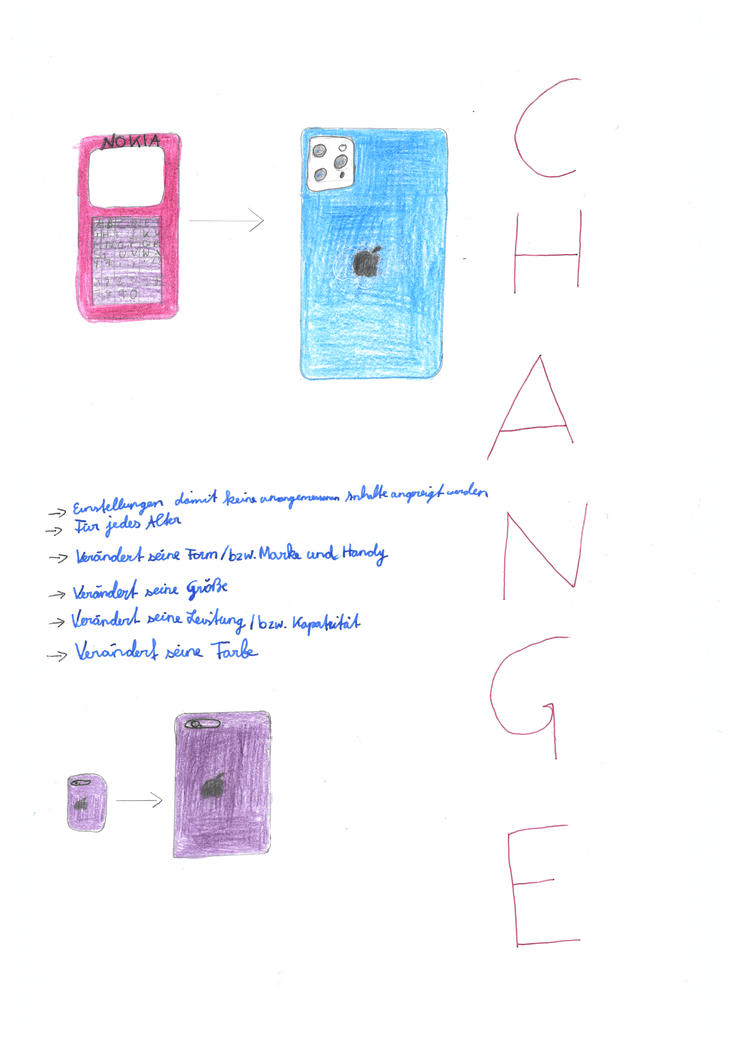 NOKIA
CHANGE
→ Einstellungen damit keine unangemessenen Inhalte angezeigt werden
→ Für jedes Alter
→ Verändert seine Form / bzw. Marke und Handy
→ Verändert seine Größe
→ Verändert seine Leistung / bzw. Kapazität
→ Verändert seine Farbe